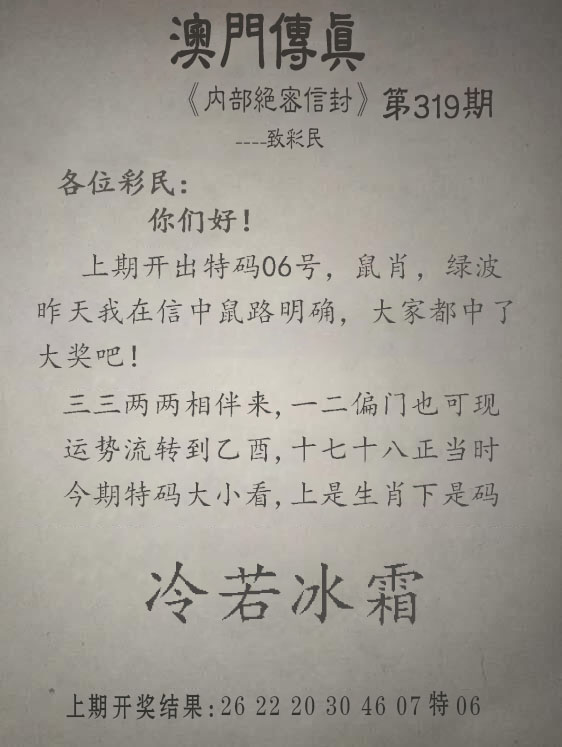 澳門傳眞
《内部絕密信封》第319期
----致彩民
各位彩民：
你们好！
上期开出特码06号，鼠肖，绿波
昨天我在信中鼠路明确，大家都中了
大奖吧！
三三两两相伴来,一二偏门也可现
运势流转到乙酉,十七十八正当时
今期特码大小看,上是生肖下是码
冷若冰霜
上期开奖结果:26 22 20 30 46 07 特 06